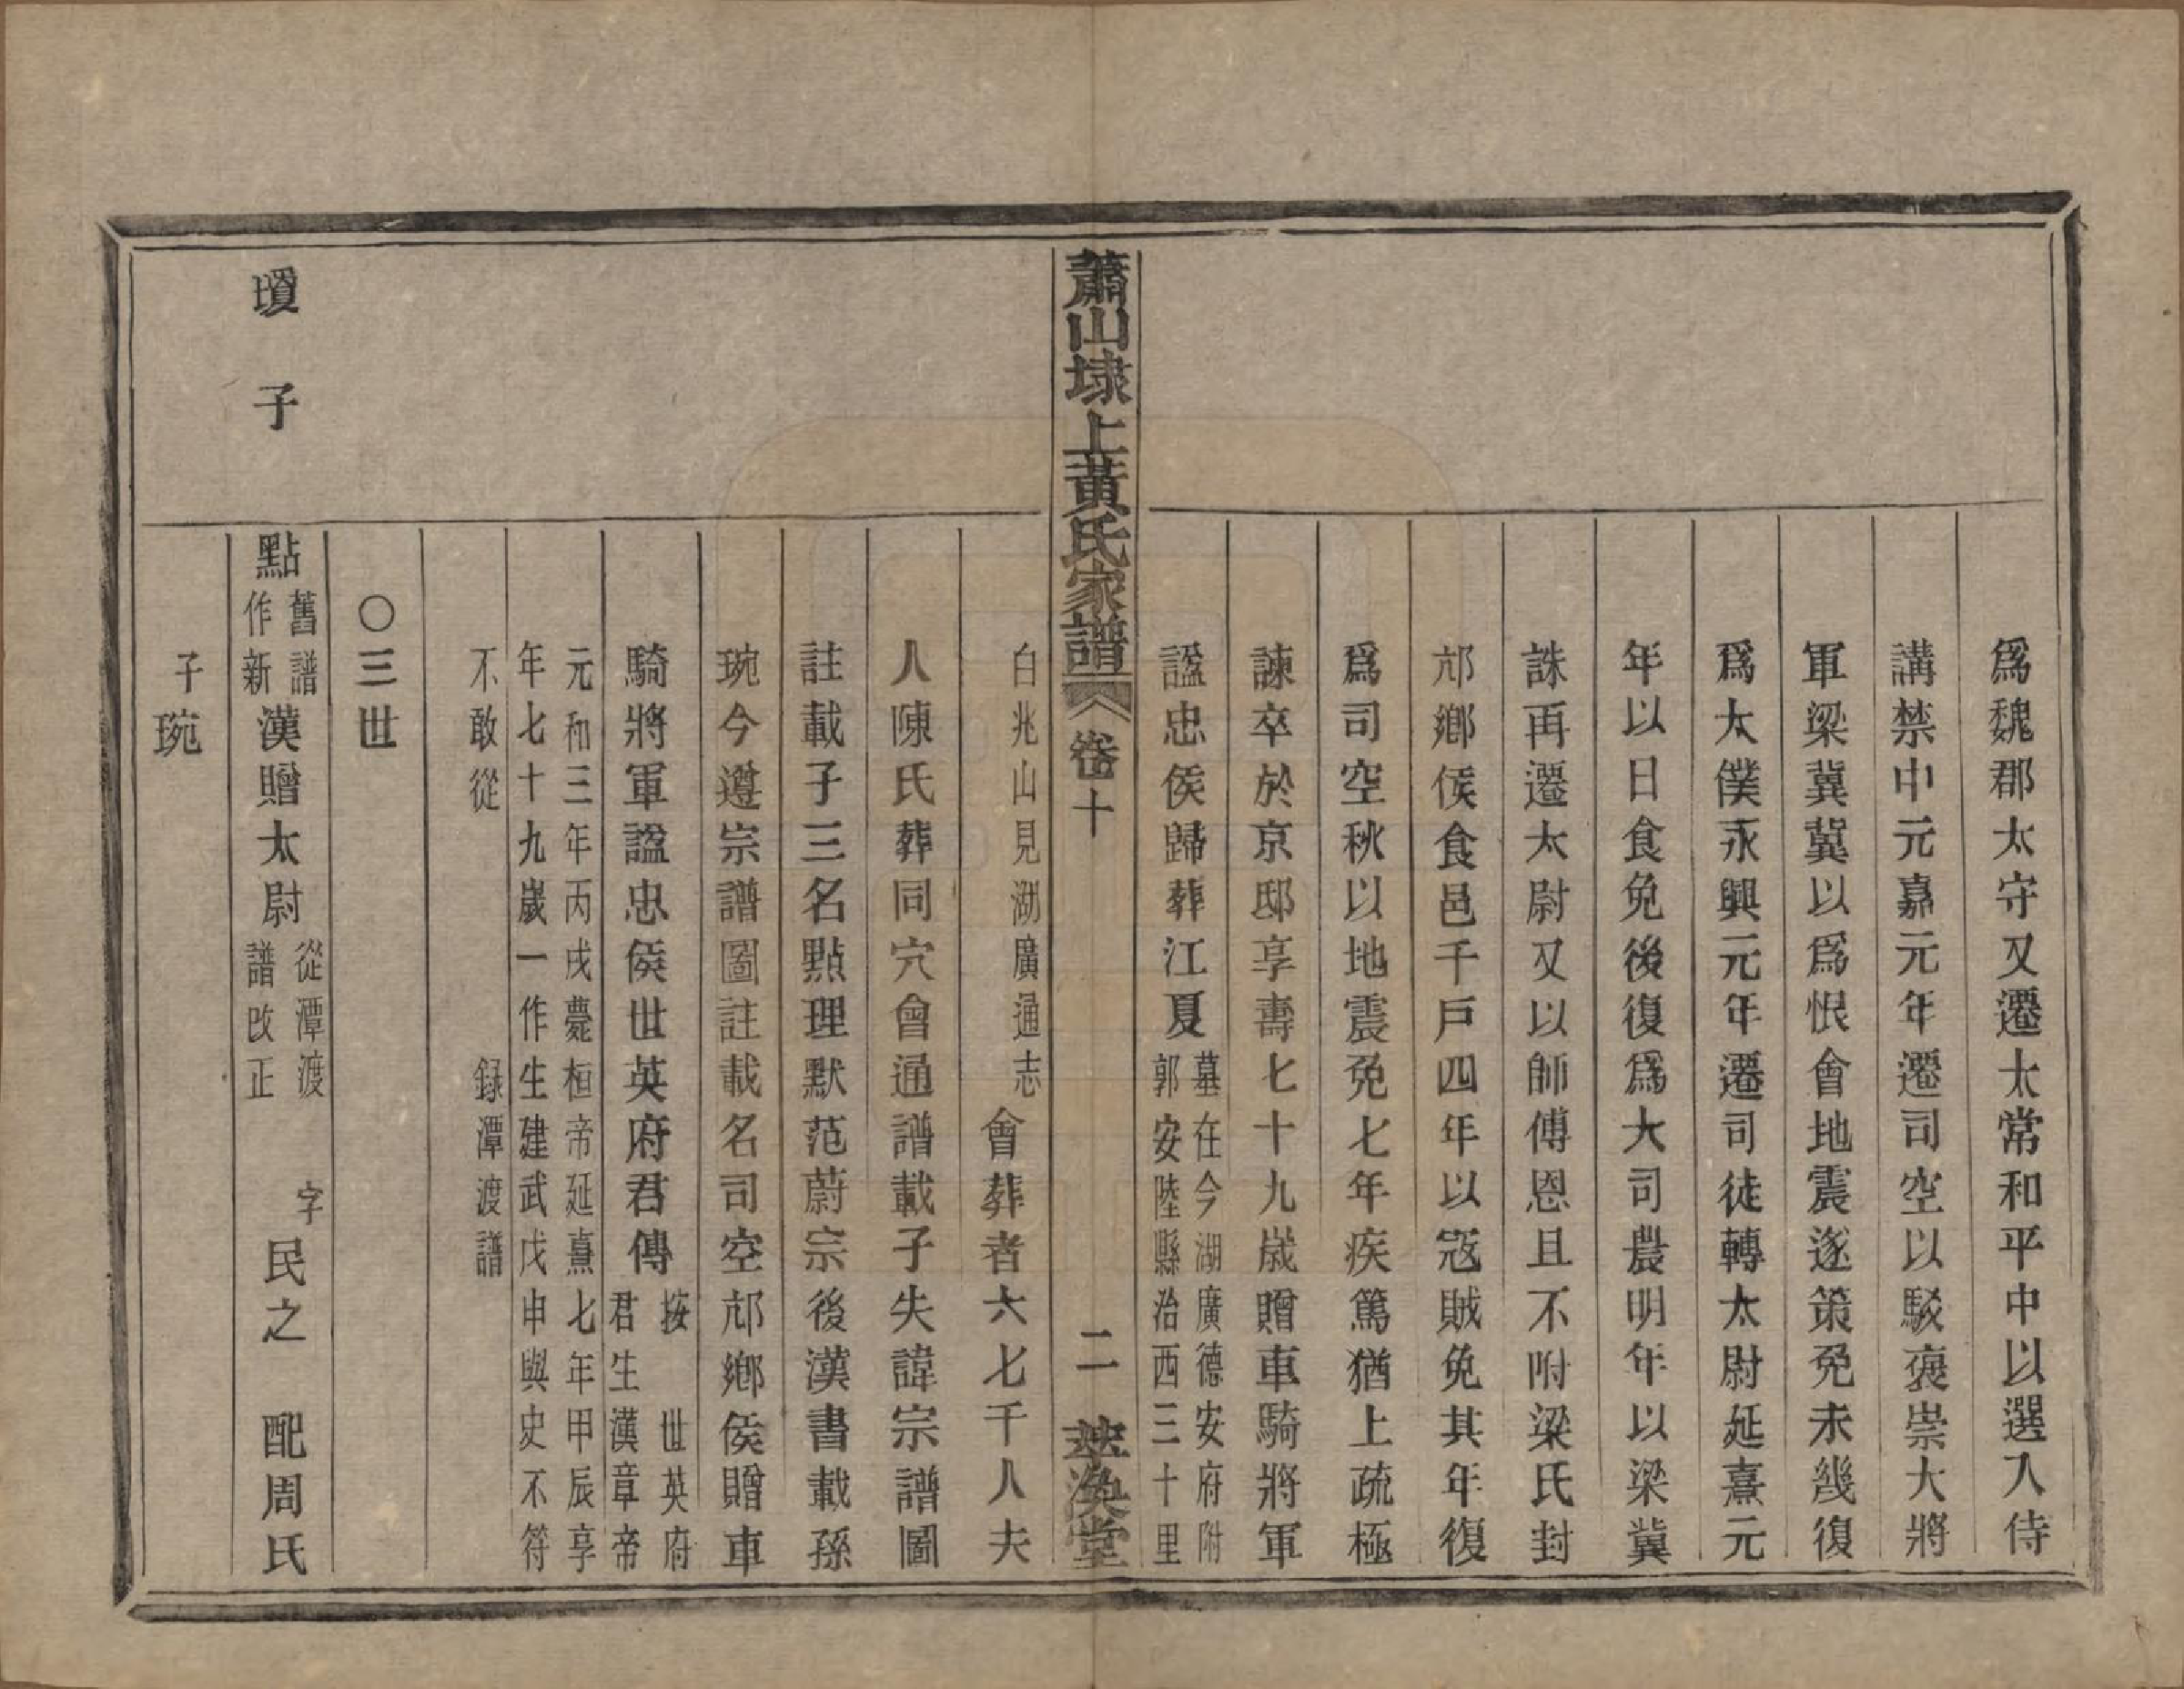 爲魏郡太守又遷太常和平中以選入侍
講禁中元嘉元年遷司空以駁褒崇大將
軍梁冀冀以爲恨會地震遂策免未幾復
爲太僕永興元年遷司徒轉太尉延熹元
年以日食免後復爲大司農明年以梁冀
誅再遷太尉又以師傅恩且不附梁氏封
邟鄉侯食邑千戶四年以寇賊免其年復
爲司空秋以地震免七年疾篤猶上疏極
諫卒於京邸享壽七十九歲贈車騎將軍
諡忠侯歸葬江夏墓在今湖廣德安府附
郭安陸縣治西三十里
蕭山埭上黃氏家譜 卷十 二 萃渙堂
白兆山見湖廣通志會葬者六七千人夫
人陳氏葬同穴會通譜載子失諱宗譜圖
註載子三名點理默范蔚宗後漢書載孫
琬今遵宗譜圖註載名司空邟鄉侯贈車
騎將軍諡忠侯世英府君傳按 世英府
君生漢章帝
元和三年丙戌薨桓帝延熹七年甲辰享
年七十九歲一作生建武戊申與史不符
不敢從 録潭渡譜
○三世
瓊子
點舊譜
作新漢贈太尉從潭渡
譜改正 字民之 配周氏
子琬